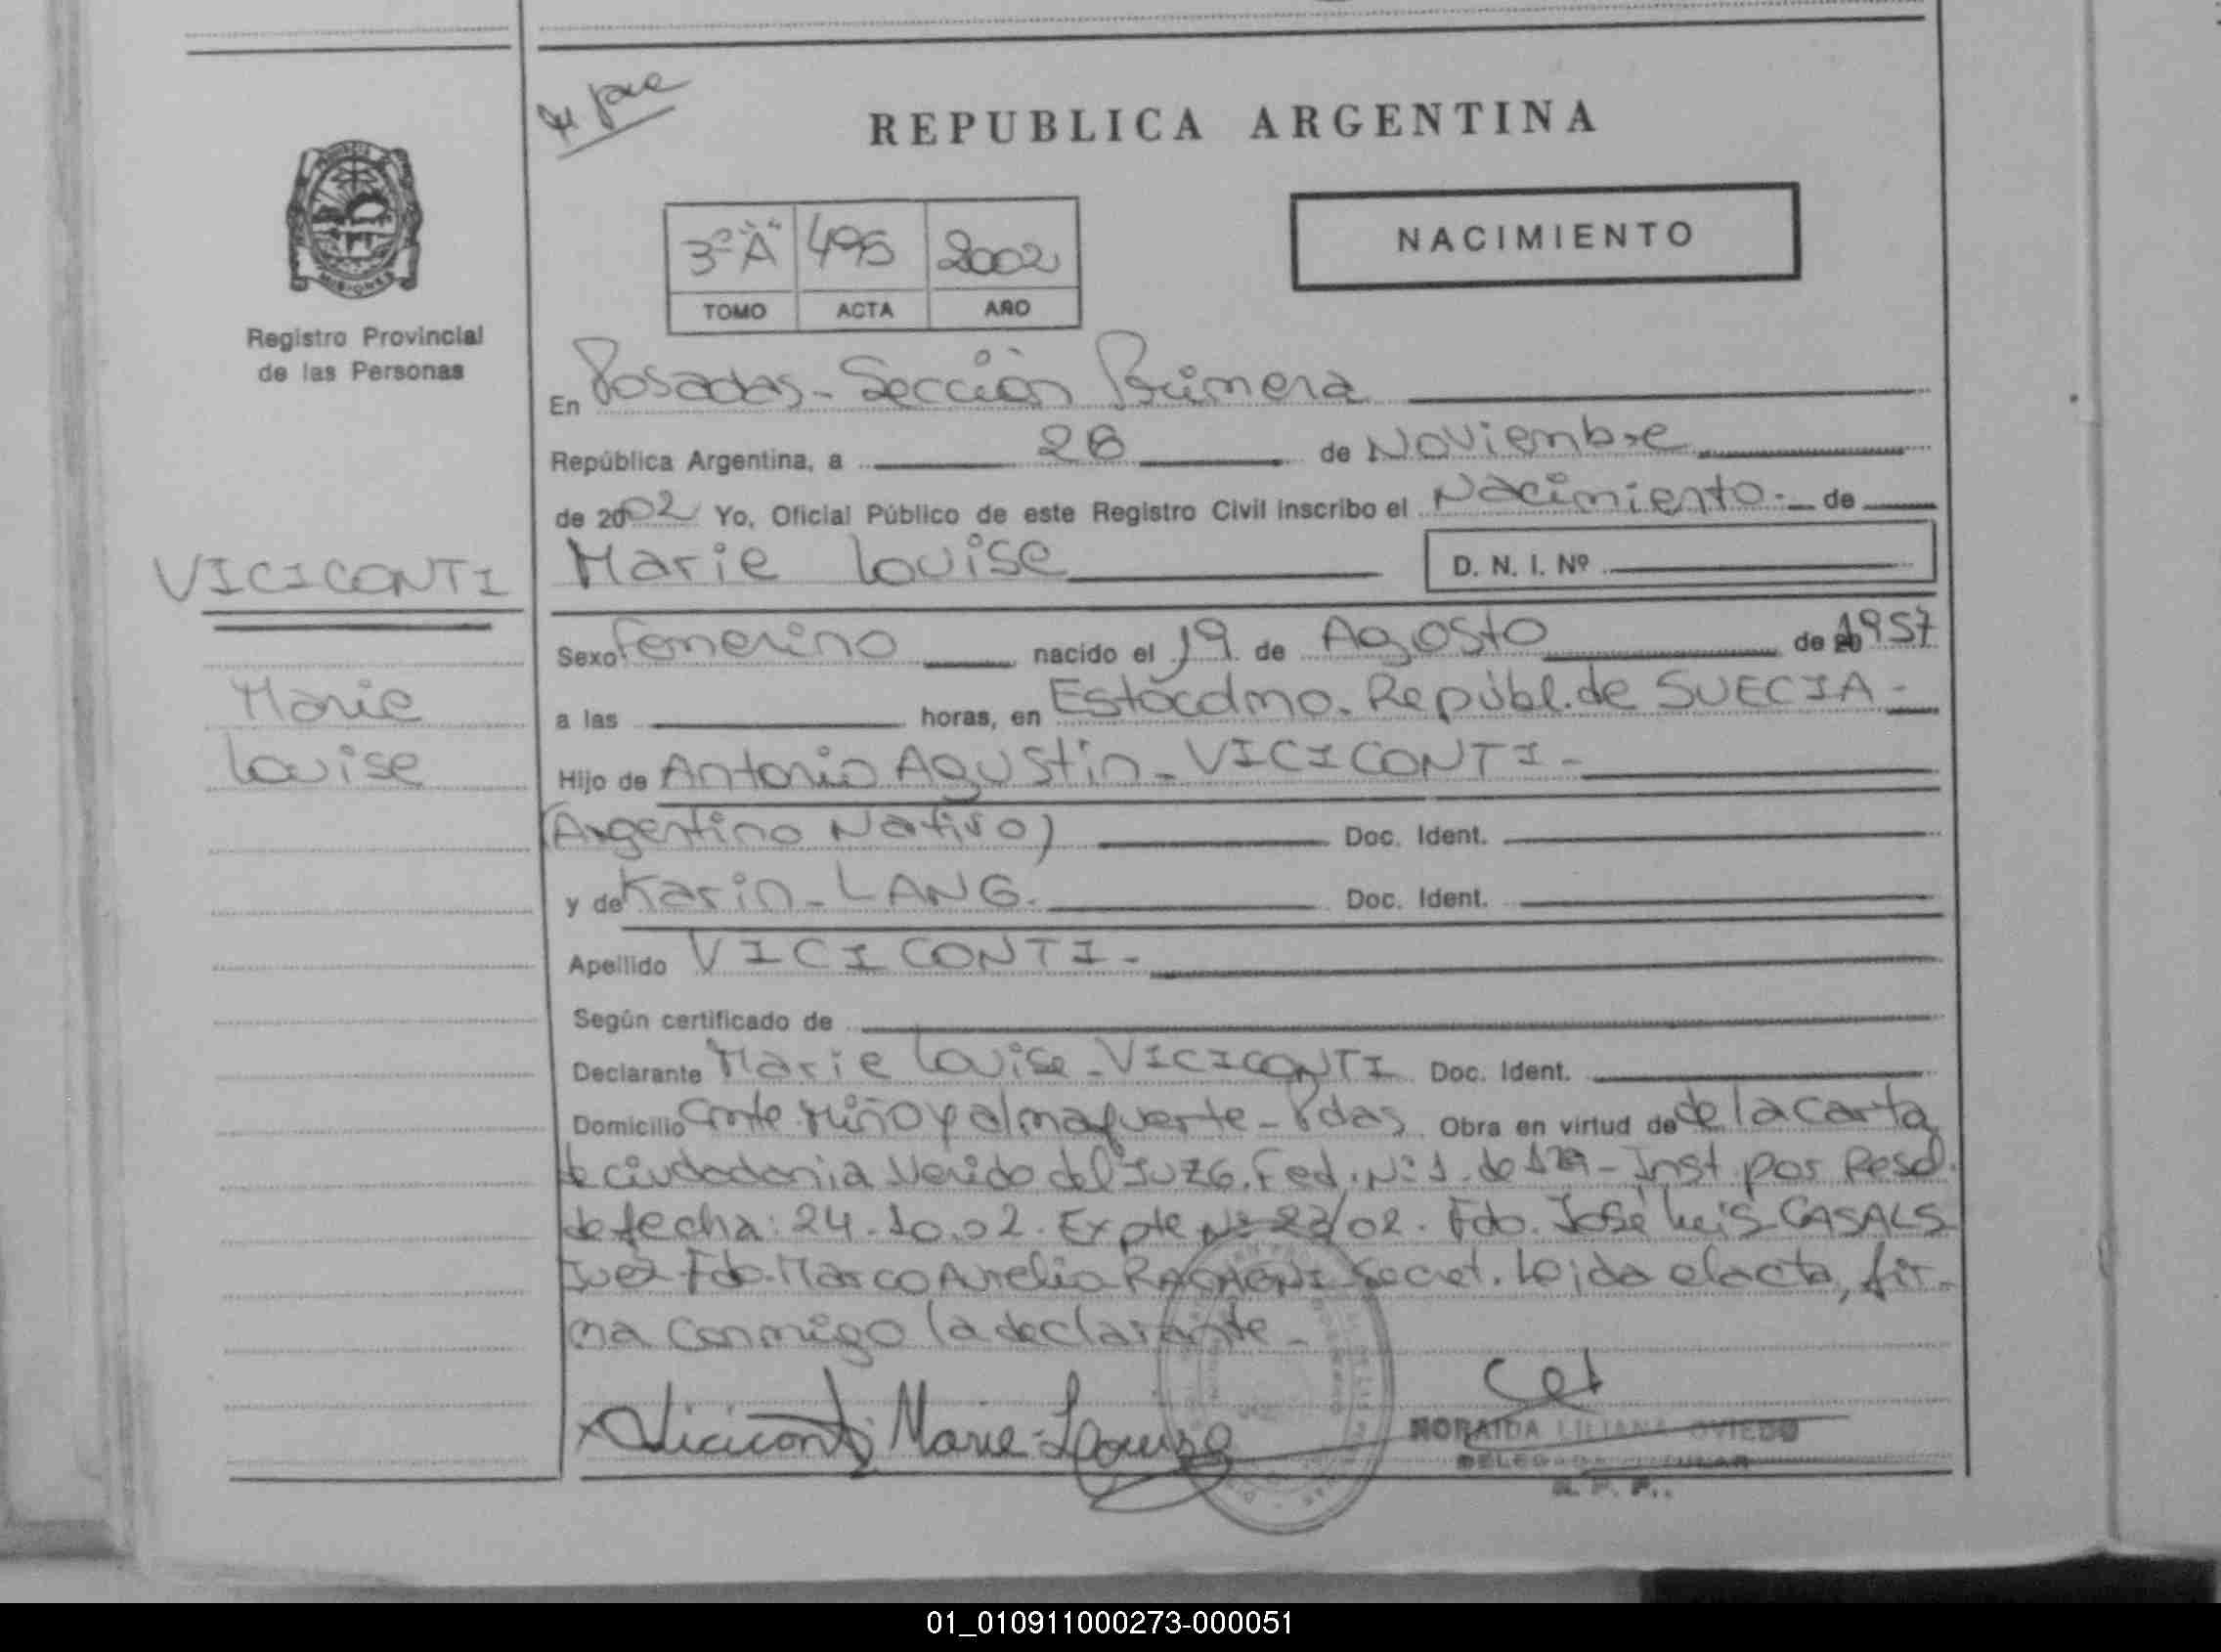 REPUBLICA ARGENTINA
3º "A" 495 2002
TOMO ACTA AÑO
NACIMIENTO
MISIONES
Registro Provincial
de las Personas
VICICONTI
Marie
Louise
En Posadas - Sección Primera
República Argentina, a 28 de Noviembre
de 2002 Yo, Oficial Público de este Registro Civil inscribo el Nacimiento. de
Marie Louise D. N. I. Nº
Sexo Femenino nacido el 19 de Agosto de 1957
a las horas, en Estocolmo. Repúbl. de SUECIA -
Hijo de Antonio Agustin - VICICONTI -
(Argentino Nativo) Doc. Ident.
y de Karin - LANG. Doc. Ident.
Apellido VICICONTI -
Según certificado de
Declarante Marie Louise - VICICONTI Doc. Ident.
Domicilio Miño y almafuerte - Pdas Obra en virtud de de la carta
de ciudadania Venido del Juzg. Fed. Nº 1. de - Inst. por Resol.
de fecha: 24.10.02. Expte Nº 23/02. Fdo. José Luis CASALS
Juez Fdo. Marco Aurelio Secret. Leida el acta, fir-
ma conmigo la declarante -
Viciconti Marie-Louise
NORAIDA LILIANA OVIEDO
DELEGADA TITULAR
R. P. P.
01_010911000273-000051